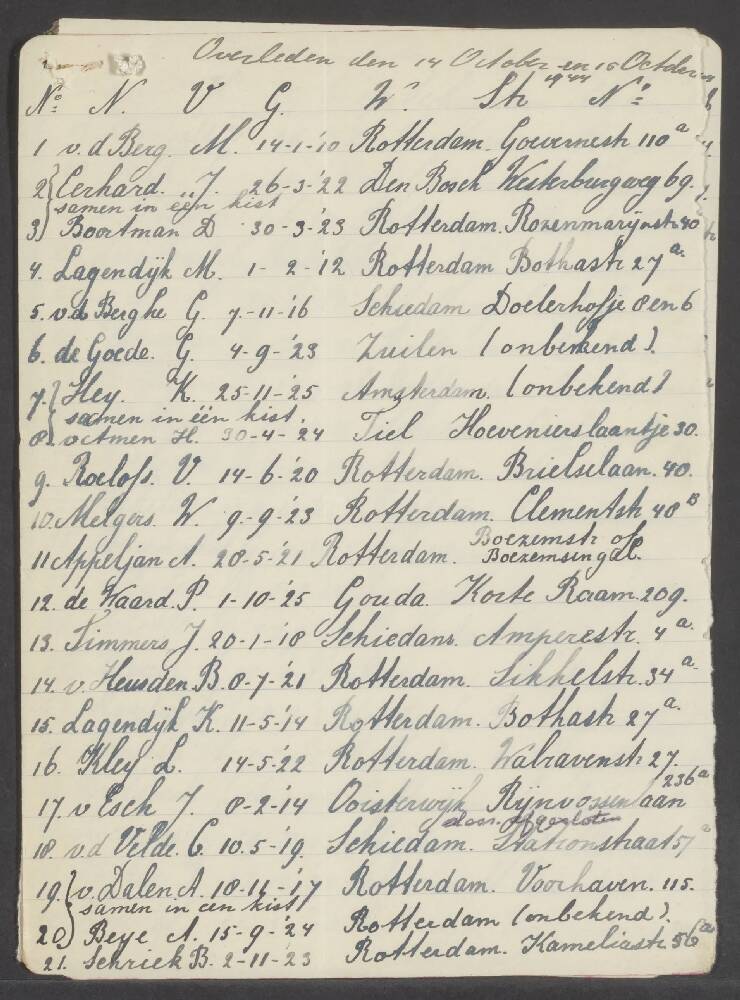 Overleden den 14 October en 15 October
1944
No. N. V G. W. Str No.
1 v.d Berg. M. 14-1-'10 Rotterdam. Gouvernestr 110 a
2 Eerhard. J. 26-3-'22 Den Bosch Westerburgweg 69.
samen in een kist
3 Boortman D 30-3-'23 Rotterdam. Rozenmarijnstr 40
4. Lagendijk M. 1-2-'12 Rotterdam Bothastr 27 a.
5. v.d Berghe G. 7-11-'16 Schiedam Doelerhofje 8 en 6
6. de Goede. G. 4-9-'23 Zuilen (onbekend).
7. Hey. K. 25-11-'25 Amsterdam. (onbekend)
samen in één kist.
8. v. Himen H. 30-4-'24 Tiel Hoevenierslaantje 30.
9. Roelofs. V. 14-6-'20 Rotterdam. Brielselaan. 40.
10. Melgers. W. 9-9-'23 Rotterdam. Clementstr 48 B
11 Appeljan A. 28-5-'21 Rotterdam. Boezemstr of
Boezemsingel.
12. de Waard. P. 1-10-'25 Gouda. Korte Raam. 209.
13. Timmers J. 20-1-'18 Schiedam. Amperestr. 4 a.
14. v. Heusden B. 8-7-'21 Rotterdam. Sikkelstr. 34 a.
15. Lagendijk K. 11-5-'14 Rotterdam. Bothastr 27 a.
16. Kley L. 14-5-'22 Rotterdam. Walravenstr 27.
236 a
17. v Esch J. 8-2-'14 Oosterwijk Rijnvossenlaan
doos. afgesloten
18. v.d Velde. C. 10.5-'19. Schiedam. Stationstraat 57 a
19. v. Dalen A. 18-11-'17 Rotterdam. Voorhaven. 115.
samen in een kist
20 Beye A. 15-9-'24 Rotterdam (onbekend).
21. Schriek B. 2-11-'23 Rotterdam. Kameliastr 56 a